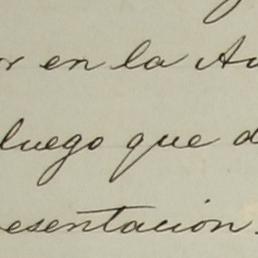 r en la Au
luego que d
esentación.